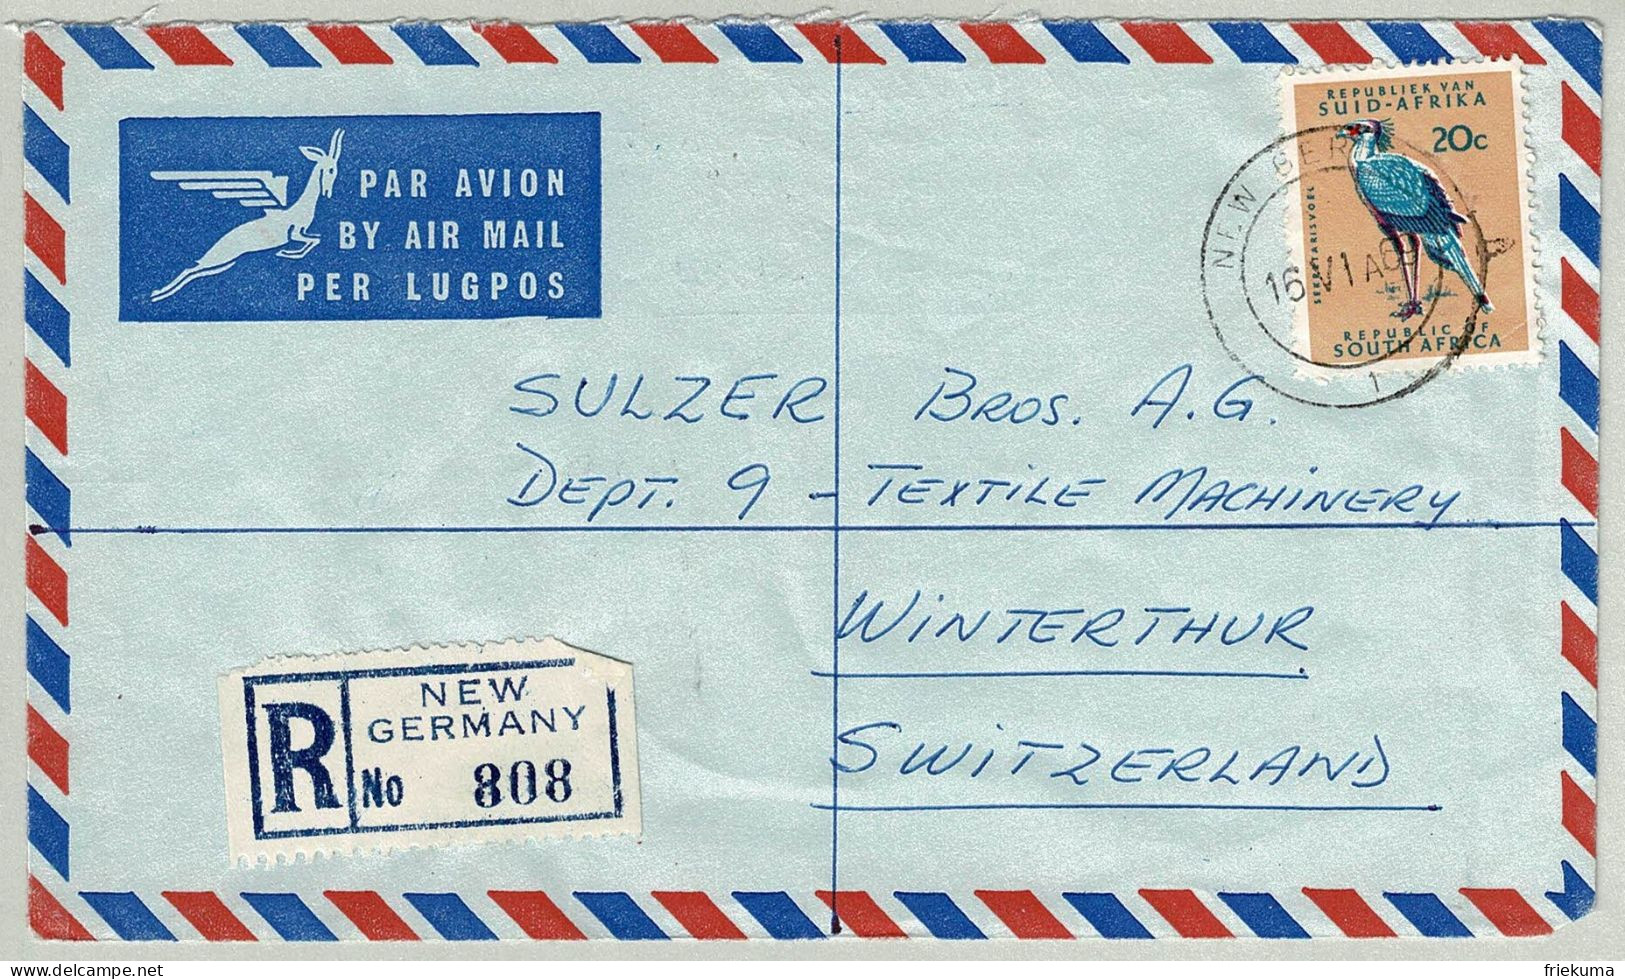 PAR AVION
BY AIR MAIL
PER LUGPOS
REPUBLIEK VAN
SUID-AFRIKA
20c
SEKRETARISVOËL
REPUBLIC OF
SOUTH AFRICA
NEW GER
16
1
SULZER Bros. A.G.
Dept. 9 - Textile Machinery
Winterthur
Switzerland
R
NEW
GERMANY
No 808
delcampe.net
friekuma